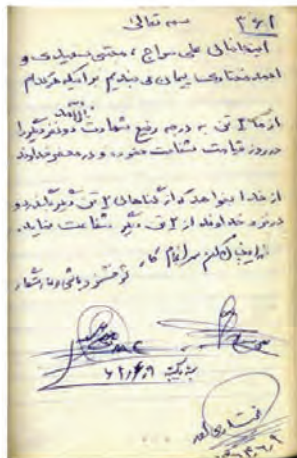 بسمه تعالی
اینجانبان علی سراج، مجتبی و
احمد مختاری پیمان می بندیم برای که هرکدام
از ما ۳ تن به درجه رفیع شهادت نائل آمد دو نفر دیگر را
در روز قیامت شفاعت نموده و در محضر خداوند
از خدا بخواهد که از گناهان ۲ تن دیگر بگذرد و
در نزد خداوند از ۲ تن دیگر شفاعت نماید.
خدایا چنان کن سرانجام کار
تو خشنود باشی و ما رستگار
۶۲/۶/۹
مختاری احمد